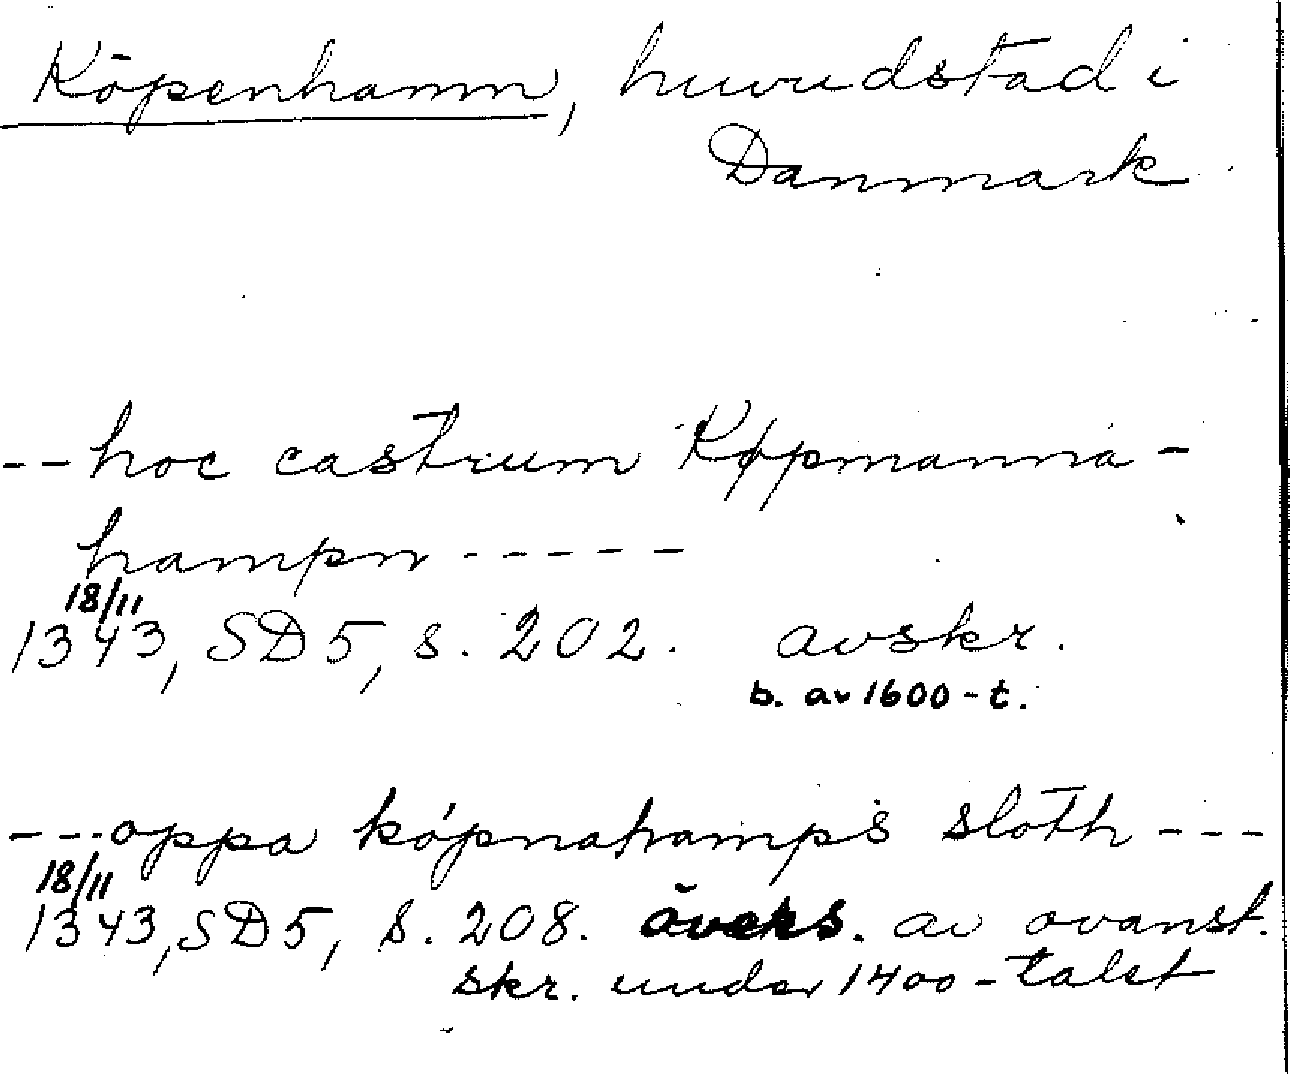 Köpenhamn, huvudstad i
Danmark
--hoc castrum Køpmanna-
hampn -----
18/11
1343, SD 5, s. 202. avskr.
b. av 1600-t.
---oppa køpnahamps sloth ---
18/11
1343, SD 5, s. 208. övers. av ovanst.
skr. under 1400-talet